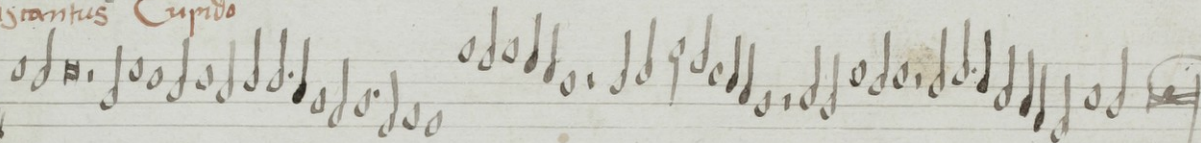 scantus Cupido